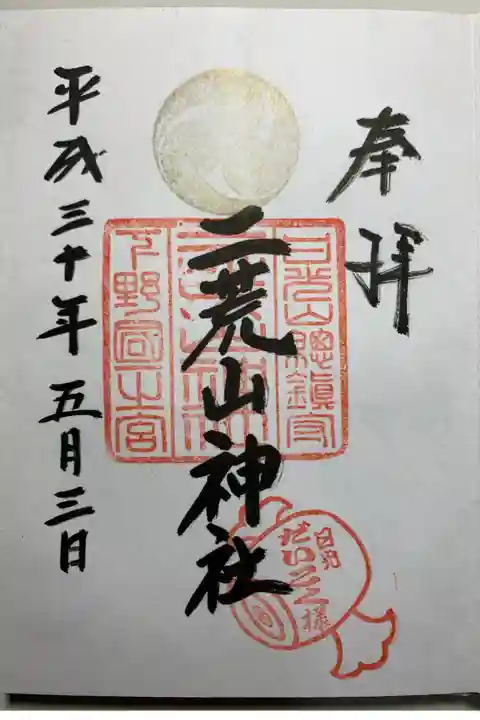 奉拝
二荒山神社
平成三十年五月三日
日光山總鎮守
二荒山神社
下野国一宮
日光
だいこく様